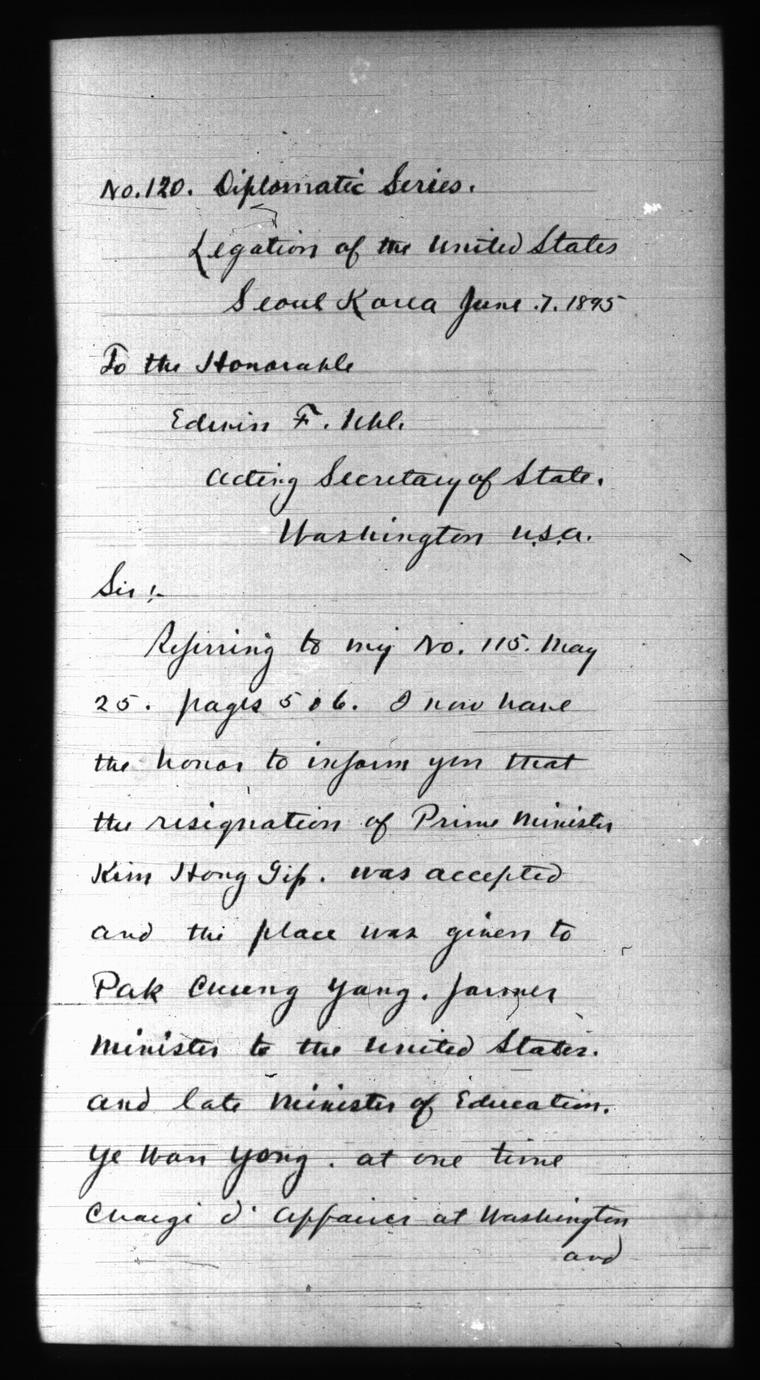 No. 120. Diplomatic Series.
Legation of the United States
Seoul Korea June. 7. 1895
To the Honorable
Edwin F. Uhl.
Acting Secretary of State.
Washington U.S.A.
Sir!-
Referring to my No. 115. May
25. pages 5 & 6. I now have
the honor to inform you that
the resignation of Prime Minister
Kim Hong Gip. was accepted
and the place was given to
Pak Chung Yang. former
Minister to the United States.
and late Minister of Education.
Ye Wan Yong. at one time
Chargi d' Affaires at Washington
and